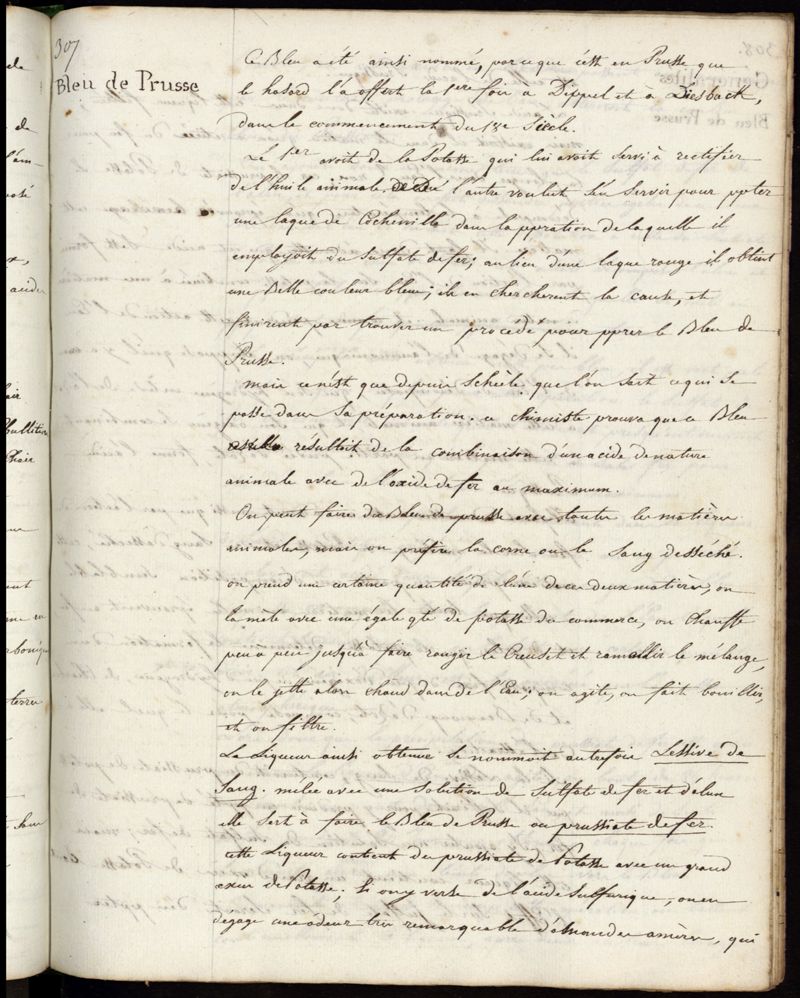 307
Bleu de Prusse
Ce Bleu a été ainsi nommé, parceque c'est en Prusse que
le hasard l'a offert la 1ere fois à Dippel et à Diesback,
dans le commencement du 18e Siècle.
Le 1er avoit de la Potasse qui lui avoit servi à rectifier
de l'huile animale, l'autre voulut s'en servir pour ppter
une laque de Cochenille dans la ppration de laquelle il
employoit du Sulfate de fer; au lieu d'une laque rouge il obtint
une Belle couleur bleue; ils en cherchèrent la cause, et
finirent par trouver un procédé pour pprer le Bleu de
Prusse.
mais ce n'est que depuis Schèele que l'on sait ce qui se
passe dans sa préparation. ce chimiste prouva que ce Bleu
résultoit de la combinaison d'un acide de nature
animale avec de l'oxide de fer au maximum.
On peut faire du Bleu de prusse avec toutes les matières
animales, mais on préfère la corne ou le Sang desséché.
on prend une certaine quantité de l'une de ces deux matières, on
la mêle avec une égale qté de potasse du commerce, on chauffe
peu à peu jusqu'à faire rougir le Creuset et ramollir le mélange,
on le jette alors chaud dans de l'Eau; on agite, on fait bouillir,
et on filtre.
La Liqueur ainsi obtenue se nommoit autrefois Lessive de
Sang. mêlée avec une solution de Sulfate de fer et d'alun
elle sert à faire le Bleu de Prusse ou prussiate de fer.
cette Liqueur contient du prussiate de Potasse avec un grand
excès de Potasse; si on y verse de l'acide Sulfurique, on en
dégage une odeur très remarquable d'amandes amères, qui